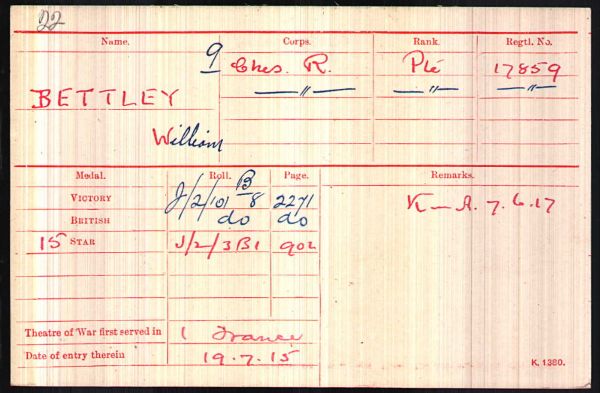 22
Name. Corps. Rank. Regtl. No.
9 Ches. R. Pte 17859
BETTLEY —〃— —〃— —〃—
William
Medal. Roll. Page. Remarks.
VICTORY J/2/101 B8 2271 K—A. 7.6.17
BRITISH do do
15 STAR J/2/3B1 902
Theatre of War first served in 1 France
Date of entry therein 19.7.15
K. 1380.